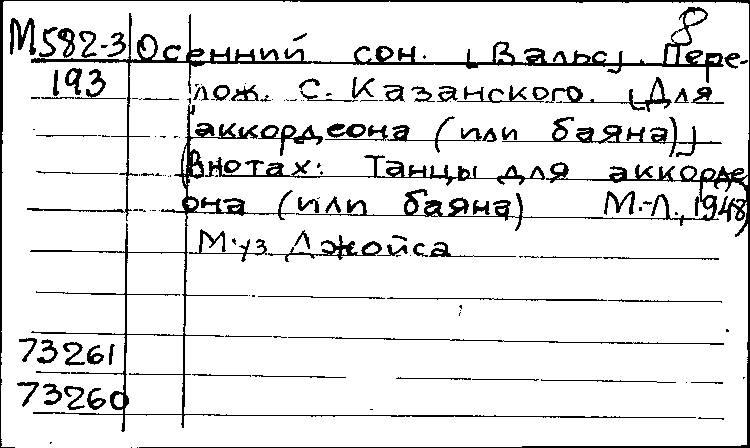 8
М582-3 Осенний сон. [Вальс]. Пере-
193 лож. С. Казанского. [Для
аккордеона (или баяна)]
(В нотах: Танцы для аккорде
она (или баяна) М.-Л., 1948)
Муз Джойса
73261
73260